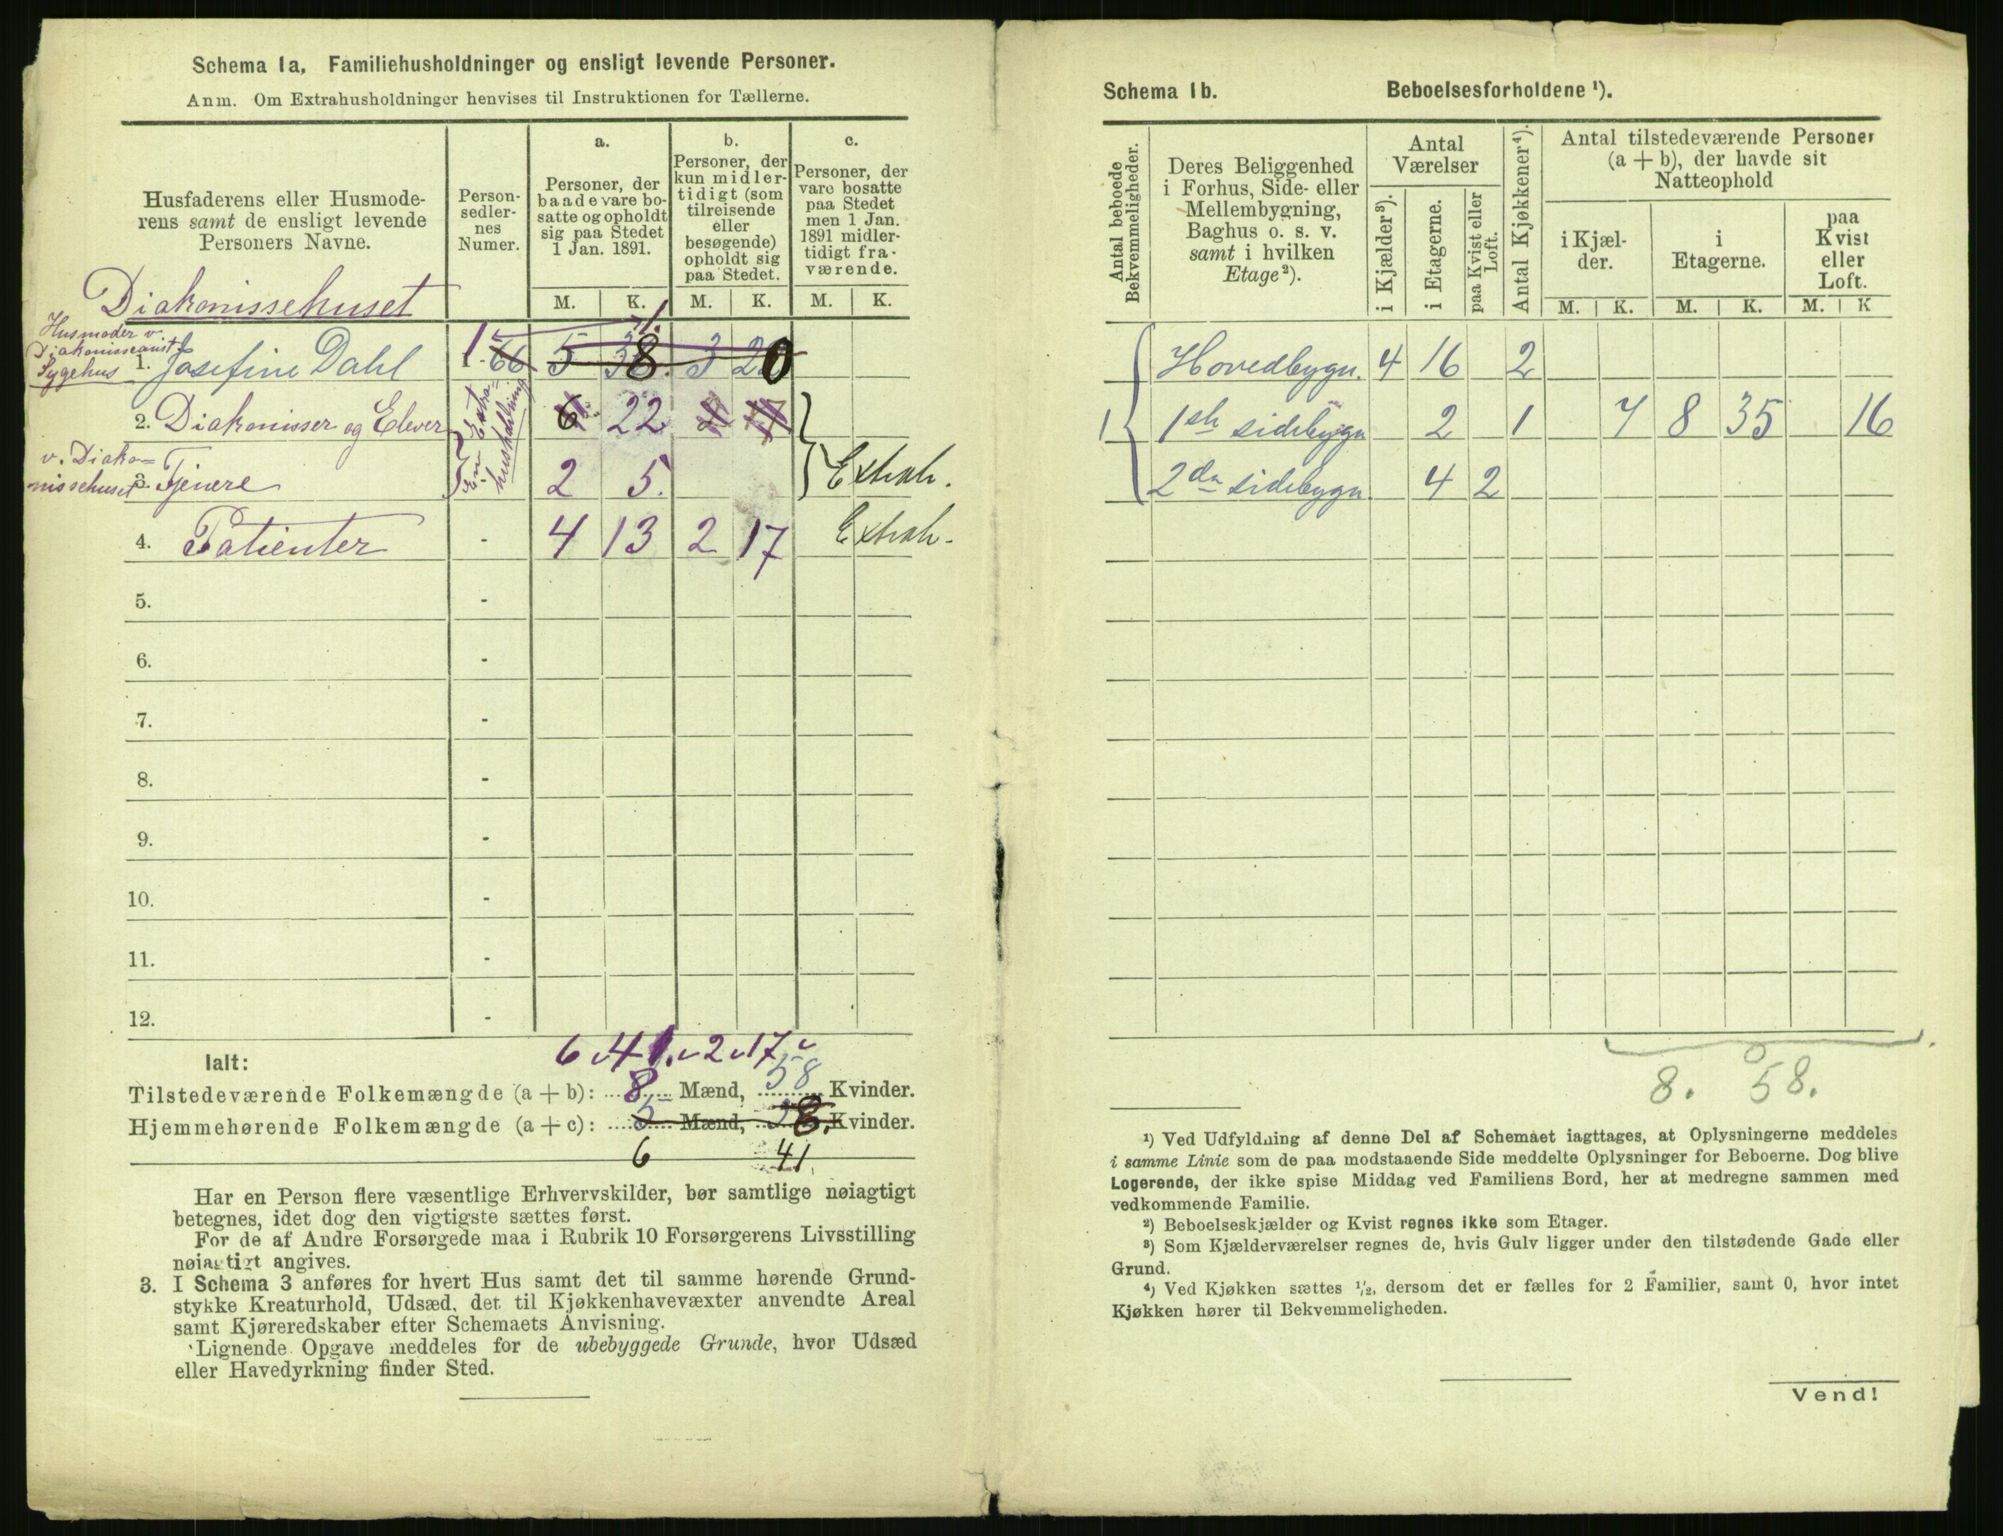 Schema 1a, Familiehusholdninger og ensligt levende Personer.
Anm. Om Extrahusholdninger henvises til Instruktionen for Tællerne.
Husfaderens eller Husmode-
rens samt de ensligt levende
Personers Navne.
Person-
sedler-
nes
Numer.
a.
Personer, der
baade vare bo-
satte og opholdt
sig paa Stedet
1 Jan. 1891.
b.
Personer, der
kun midler-
tidigt (som
tilreisende
eller
besøgende)
opholdt sig
paa Stedet.
c.
Personer, der
vare bosatte
paa Stedet
men 1 Jan.
1891 midler-
tidigt fra-
værende.
M. K. M. K. M. K.
Diakonissehuset
Husmoder v.
Diakonisseanst.
Sygehus
1. Josefine Dahl 1 - 66 5 38. 3 20
1.
2. Diakonisser og Elever 6 22
v. Diako-
nissehuset
3. Tjenere 2 5. Extrah.
Een Extra-
husholdning
4. Patienter - 4 13 2 17 Extrah.
5. -
6. -
7. -
8. -
9. -
10. -
11. -
12. -
6 41. 2 17
Ialt:
Tilstedeværende Folkemængde (a + b): 8 Mænd, 58 Kvinder.
Hjemmehørende Folkemængde (a + c): 5 Mænd, 38. Kvinder.
6 41.
Har en Person flere væsentlige Erhvervskilder, bør samtlige nøiagtigt
betegnes, idet dog den vigtigste sættes først.
For de af Andre Forsørgede maa i Rubrik 10 Forsørgerens Livsstilling
nøiagtigt angives.
3. I Schema 3 anføres for hvert Hus samt det til samme hørende Grund-
stykke Kreaturhold, Udsæd, det til Kjøkkenhavevæxter anvendte Areal
samt Kjøreredskaber efter Schemaets Anvisning.
Lignende Opgave meddeles for de ubebyggede Grunde, hvor Udsæd
eller Havedyrkning finder Sted.
Schema 1b. Beboelsesforholdene ¹).
Antal beboede
Bekvemmeligheder.
Deres Beliggenhed
i Forhus, Side- eller
Mellembygning,
Baghus o. s. v.
samt i hvilken
Etage²).
Antal
Værelser
i Kjælder³).
i Etagerne.
paa Kvist eller
Loft.
Antal Kjøkkener⁴).
Antal tilstedeværende Personer
(a + b), der havde sit
Natteophold
i Kjæl-
der.
i
Etagerne.
paa
Kvist
eller
Loft.
M. K. M. K. M. K
Hovedbygn. 4 16 2
1 1ste sidebygn 2 1 7 8 35 16
2den sidebygn. 4 2
8. 58.
¹) Ved Udfyldning af denne Del af Schemaet iagttages, at Oplysningerne meddeles
i samme Linie som de paa modstaaende Side meddelte Oplysninger for Beboerne. Dog blive
Logerende, der ikke spise Middag ved Familiens Bord, her at medregne sammen med
vedkommende Familie.
²) Beboelseskjælder og Kvist regnes ikke som Etager.
³) Som Kjælderværelser regnes de, hvis Gulv ligger under den tilstødende Gade eller
Grund.
⁴) Ved Kjøkken sættes ½, dersom det er fælles for 2 Familier, samt 0, hvor intet
Kjøkken hører til Bekvemmeligheden.
Vend!